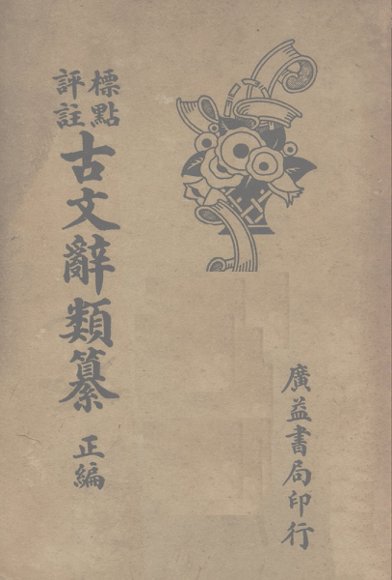 標點
評註
古文辭類纂
正編
廣益書局印行